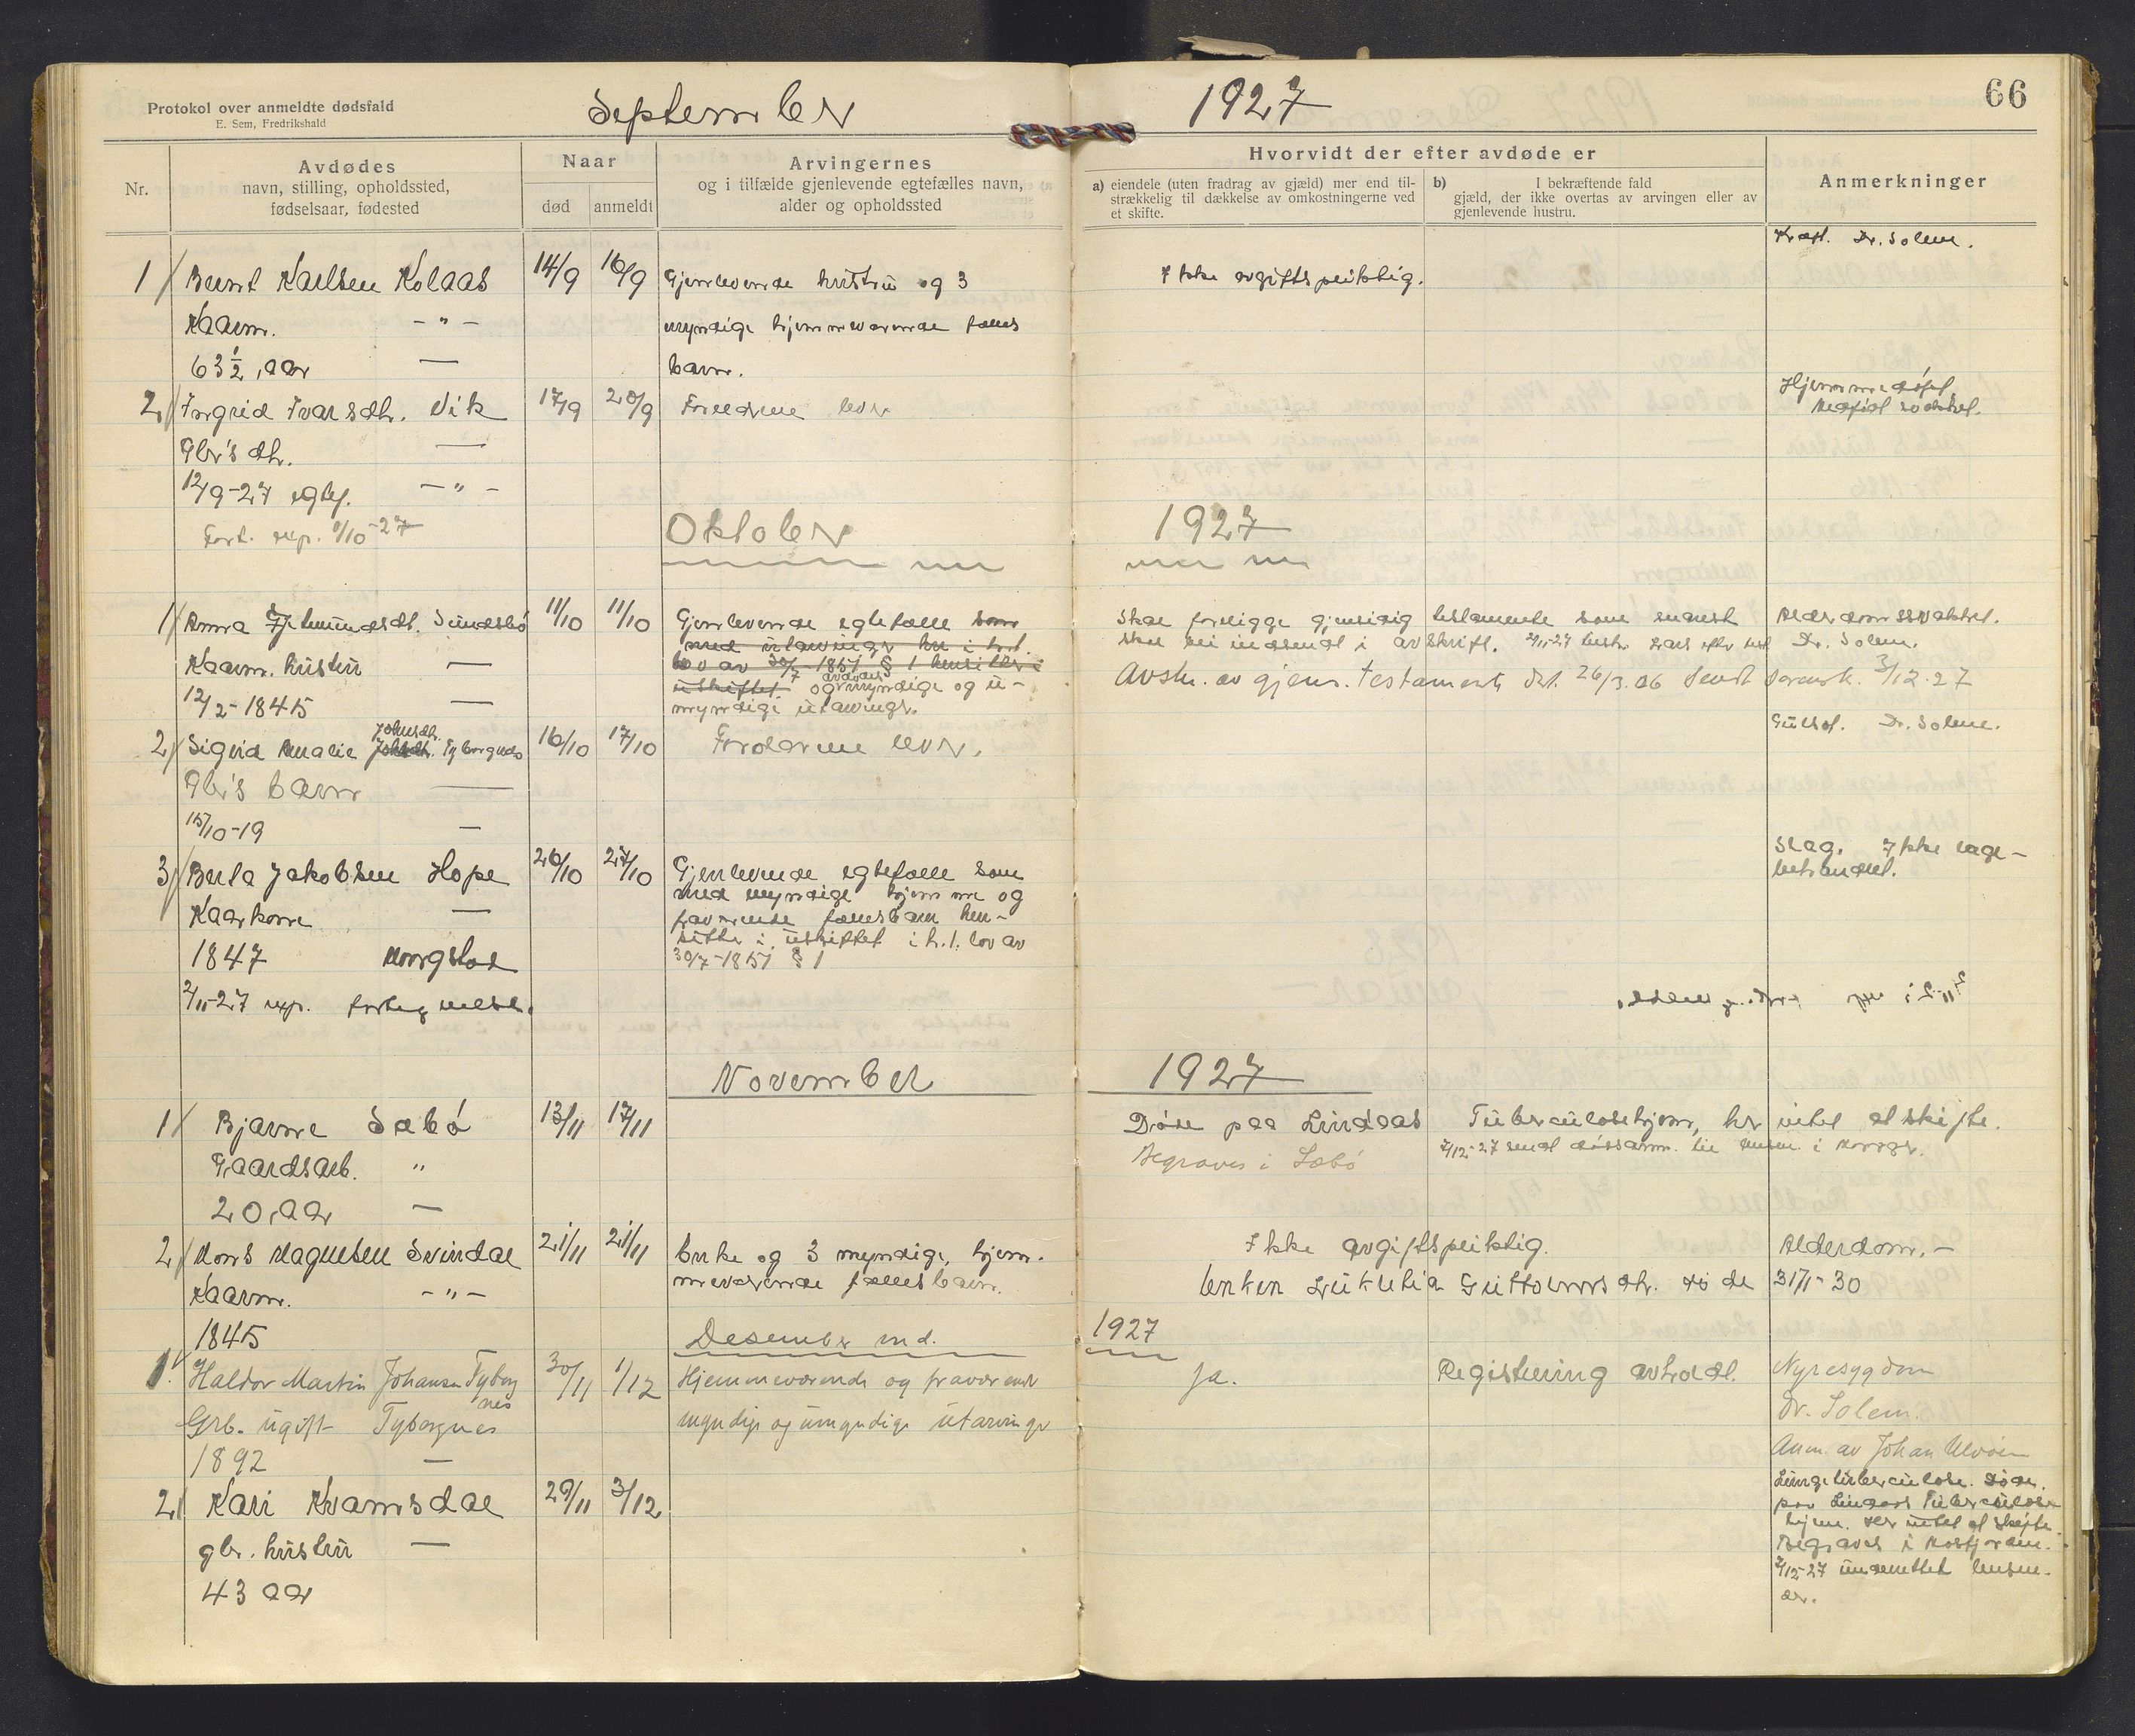 Protokol over anmeldte dødsfald
E. Sem, Fredrikshald
September
1927
66
Nr.
Avdødes
navn, stilling, opholdssted,
fødselsaar, fødested
Naar
død
anmeldt
Arvingernes
og i tilfælde gjenlevende egtefælles navn,
alder og opholdssted
Hvorvidt der efter avdøde er
a) eiendele (uten fradrag av gjæld) mer end til-
strækkelig til dækkelse av omkostningerne ved
et skifte.
b) I bekræftende fald
gjæld, der ikke overtas av arvingen eller av
gjenlevende hustru.
Anmerkninger
1/ Bernt Karlsen Kolaas 14/9 16/9 Gjenlevende hustru og 3 Ikke avgiftspliktig. Kræft. Dr. Solem.
Kaarm. -"- myndige hjemmeværende fælles
63 1/2 aar — barn.
2/ Ingrid Ivarsdtr. Vik 17/9 20/9 Forældrene lever Hjemmedøpt.
Medfødt svakhet.
Gbr's dtr. —
12/9-27 egtef. -"-
Fort. exp. 1/10-27
Oktober 1927
1/ Anna Sundsbø 11/10 11/10 Gjenlevende egtefælle som Skal foreligge gjensidig testamente som snarest Alderdomssvakhet.
med utarvinger hen i h.t. skal bli indsendt i avskrift. Dr. Solem.
Kaarm. hustru — lov av 30/7-1851 § 1 hensitter i
uskiftet. og avdødes myndige og u- Avskr. av gjens. testamente dat. 26/3.06 sendt sorensk. 3/12.27
12/2-1845 — myndige utarvinger.
2/ Sigrid Amalie Johnsdtr. Tyborgnes 16/10 17/10 Forældrene lever. Gulsot. Dr. Solem.
Gbr's barn —
15/10-19 —
3/ Berta Jakobsen Hope 26/10 27/10 Gjenlevende egtefælle som Slag. Ikke læge-
behandlet.
med myndige hjemme og
Kaarkone — fraværende fællesbarn hen-
sitter i uskiftet i h.t. lov av
1847 Mongstad 30/7-1851 § 1
2/11-27 exp. fortegnelse.
November 1927
1/ Bjarne Sæbø 13/11 17/11 Døde paa Lindaas Tuberculosehjem, her intet at skifte.
Gaardsarb. " Begraves i Sæbø 2/12-27 sendt dødsanm. til lensm. i
20 aar —
2/ Mons Magnesen Svindal 21/11 21/11 Enke og 3 myndige, hjem- Ikke avgiftspliktig. Alderdom.-
Kaarm. -"- meværende fællesbarn. Enken Lukretia Guttormsdtr. døde 31/1-30
1845
Desember md. 1927
1/ Haldor Martin Johansen Tyborg
nes 30/11 1/12 Hjemmeværende og fraværende Ja. Registrering avholdt. Nyresygdom
Grb. ugift Tyborgnes myndige og umyndige utarvinger Dr. Solem.
1892 — Anm. av Johan Ulvøen
2/ Kari Kvamsdal 29/11 3/12 Lungetuberculose. Døde
paa Lindaas Tuberculose
hjem. Her intet at skifte.
gbr. hustru — Begraves i Mosfjorden.
43 aar 2/12-27 underrettet lensm.
der.